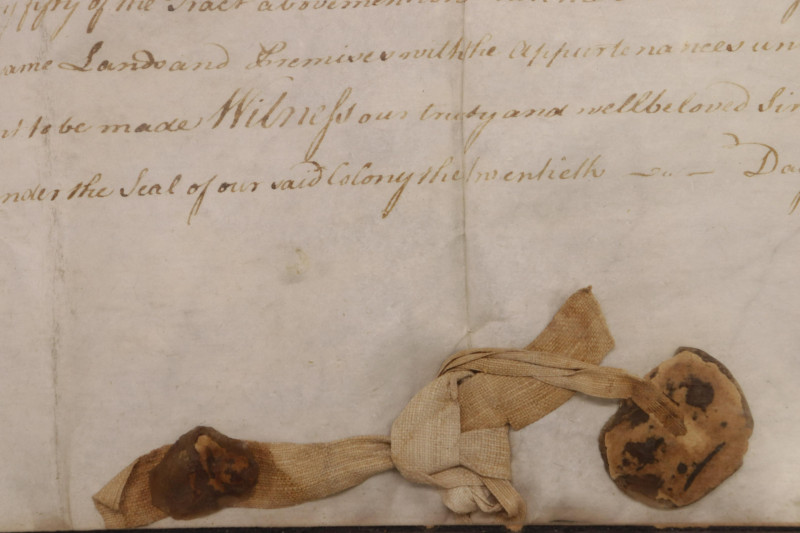 of the Tract abovementio
ame Lands and Premises with the Appurtenances un
to be made Witness our trusty and wellbeloved Sir
nder the Seal of our said Colony the twentieth — Day